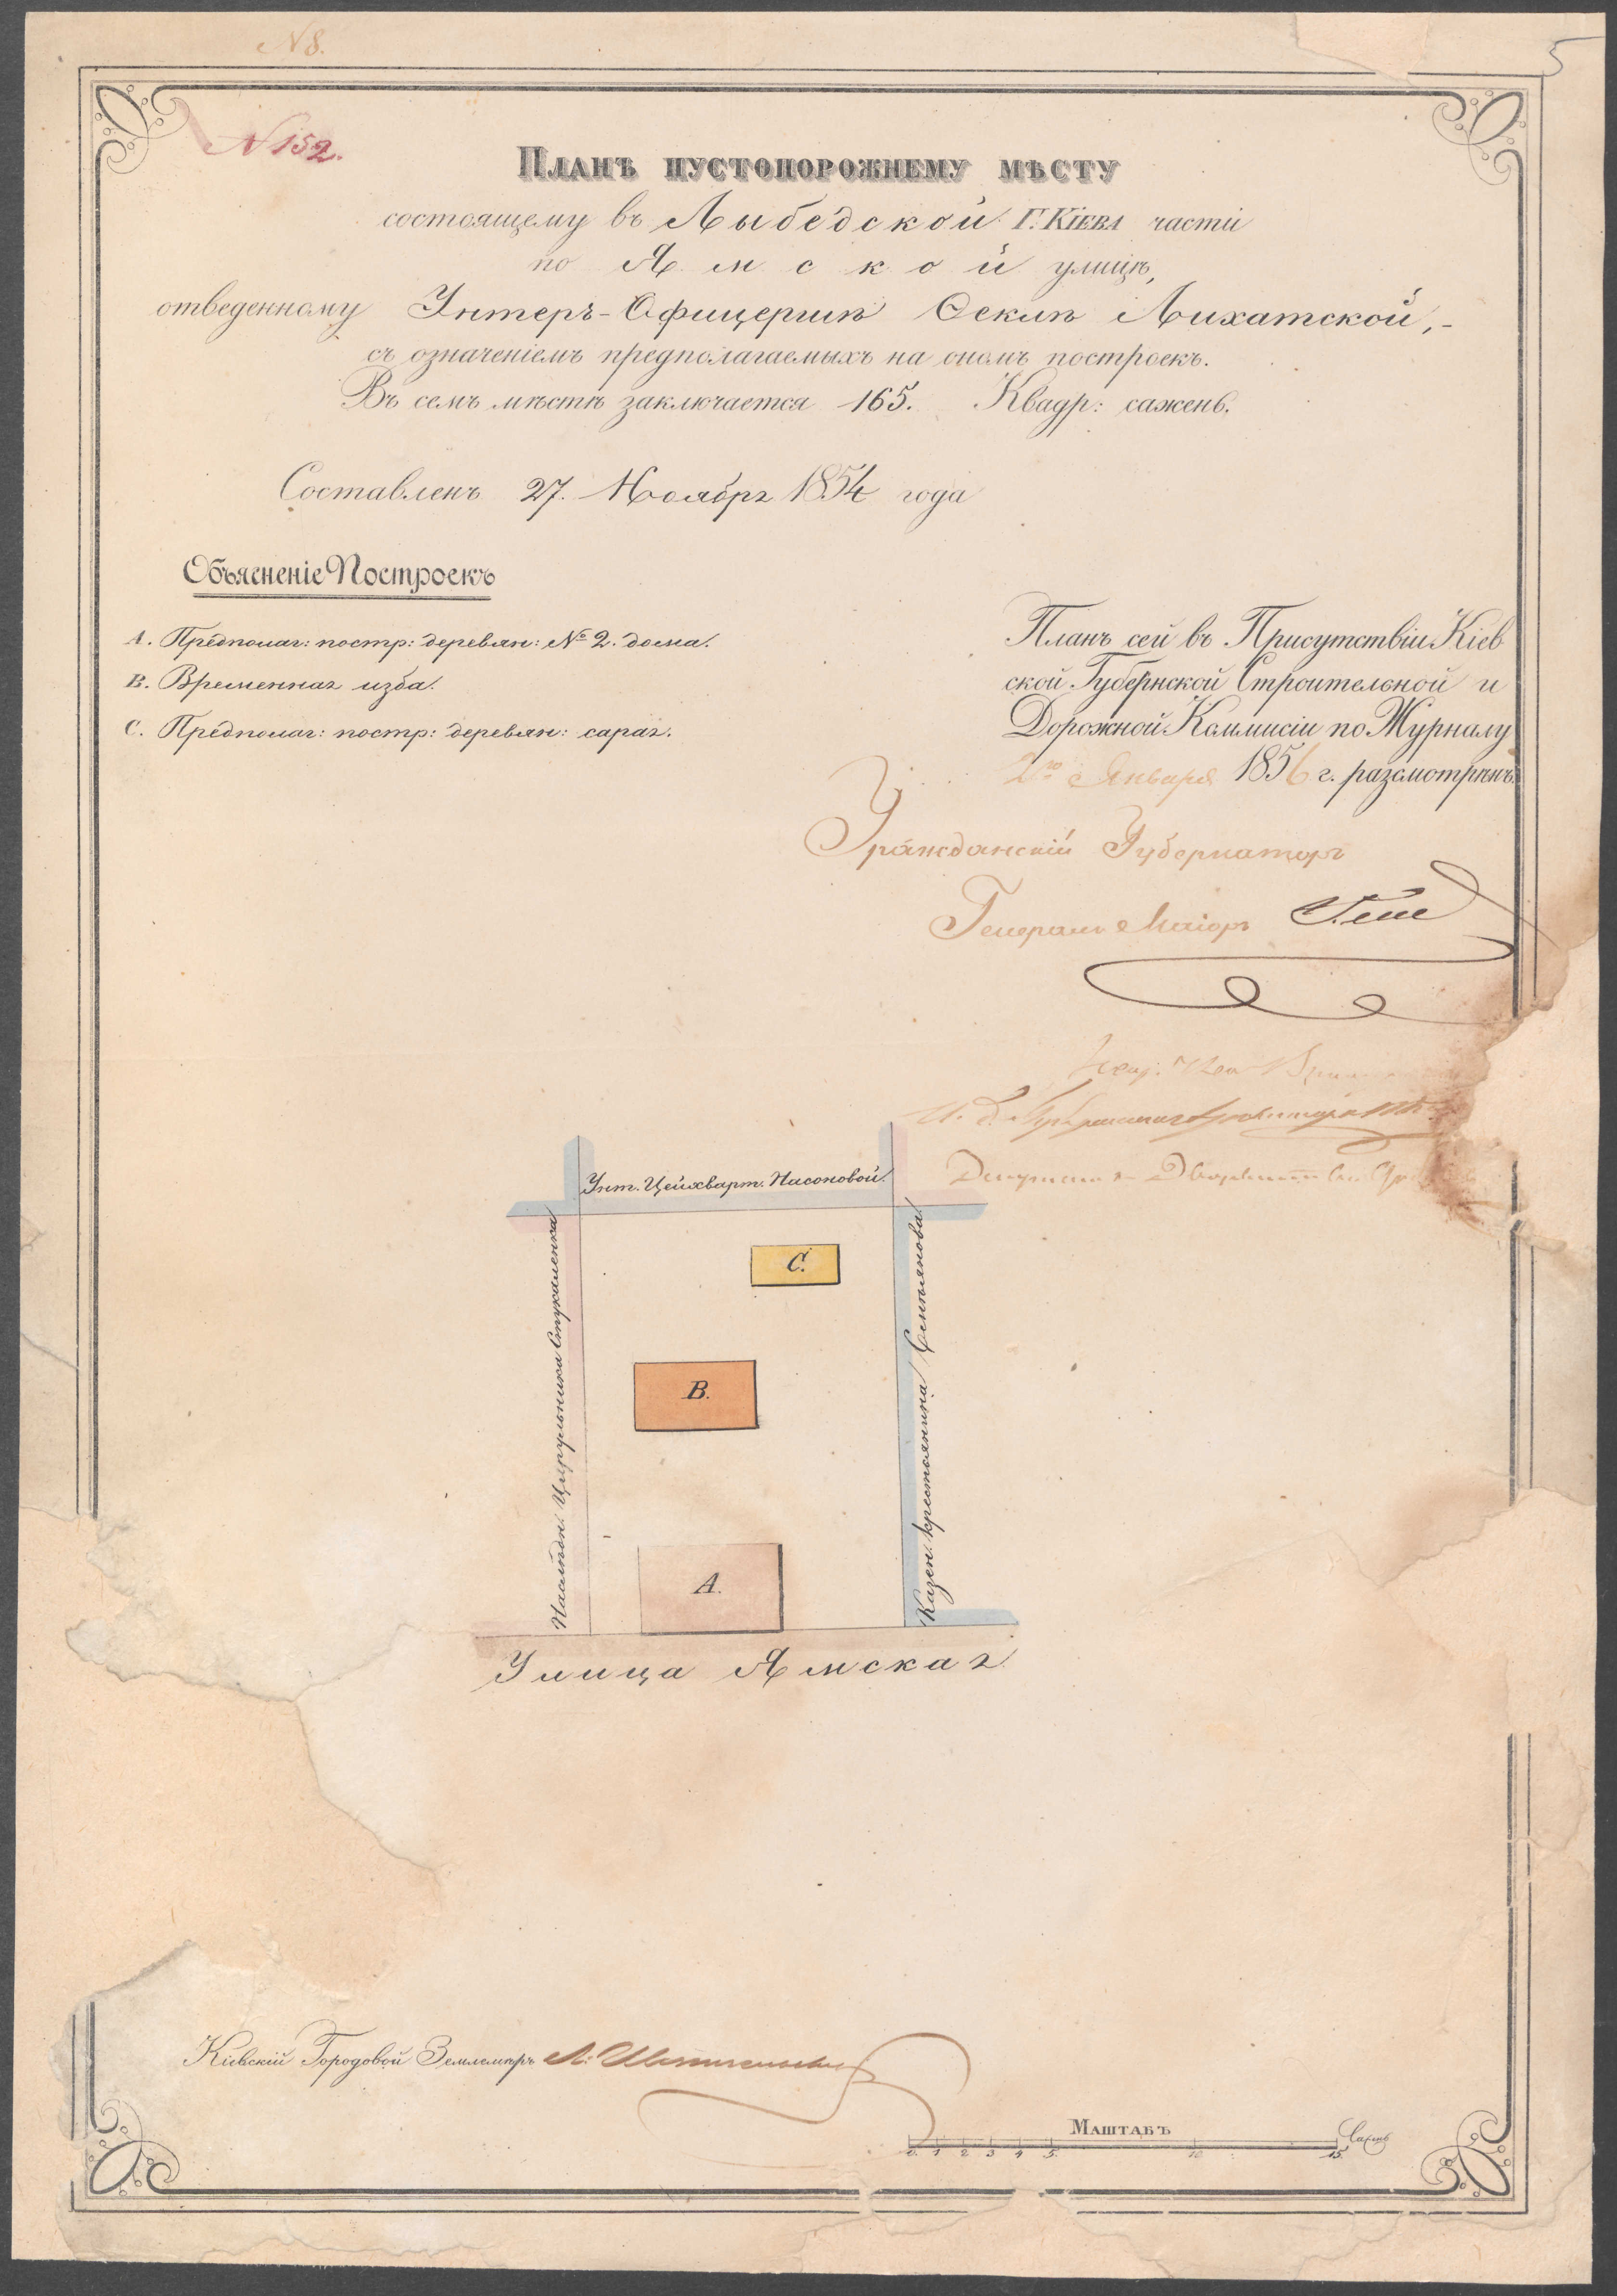 N 8.
5
N 152.
Планъ пустопорожнему мѣсту
состоящему въ Лыбедской Г. Кіева части
по Ямской улицѣ,
отведенному Унтеръ-Офицершѣ Феклѣ Лихатской,-
съ означеніемъ предполагаемыхъ на ономъ построекъ.
Въ семъ мѣстѣ заключается 165. Квадр: сажень.
Составленъ 27. Ноября 1854 года
Объясненіе Построекъ
A. Предполаг: постр: деревян: № 2. дома.
B. Временная изба.
C. Предполаг: постр: деревян: сарая.
Планъ сей въ Присутствіи Кіев
ской Губернской Строительной и
Дорожной Коммисіи по Журналу
2го Января 1856 г. разсмотрѣнъ.
Гражданскій Губернаторъ
Генералъ Маіоръ Гессе
Унт. Цейхварт. Насоновой.
Наслѣдн. Цырульника Стукаленка
Казен. крестьянина Семьянова
C.
B.
A.
Улица Ямская.
Кіевскій Городовой Землемѣръ
Маштабъ
Сажень
0. 1 2 3 4 5. 10. 15.